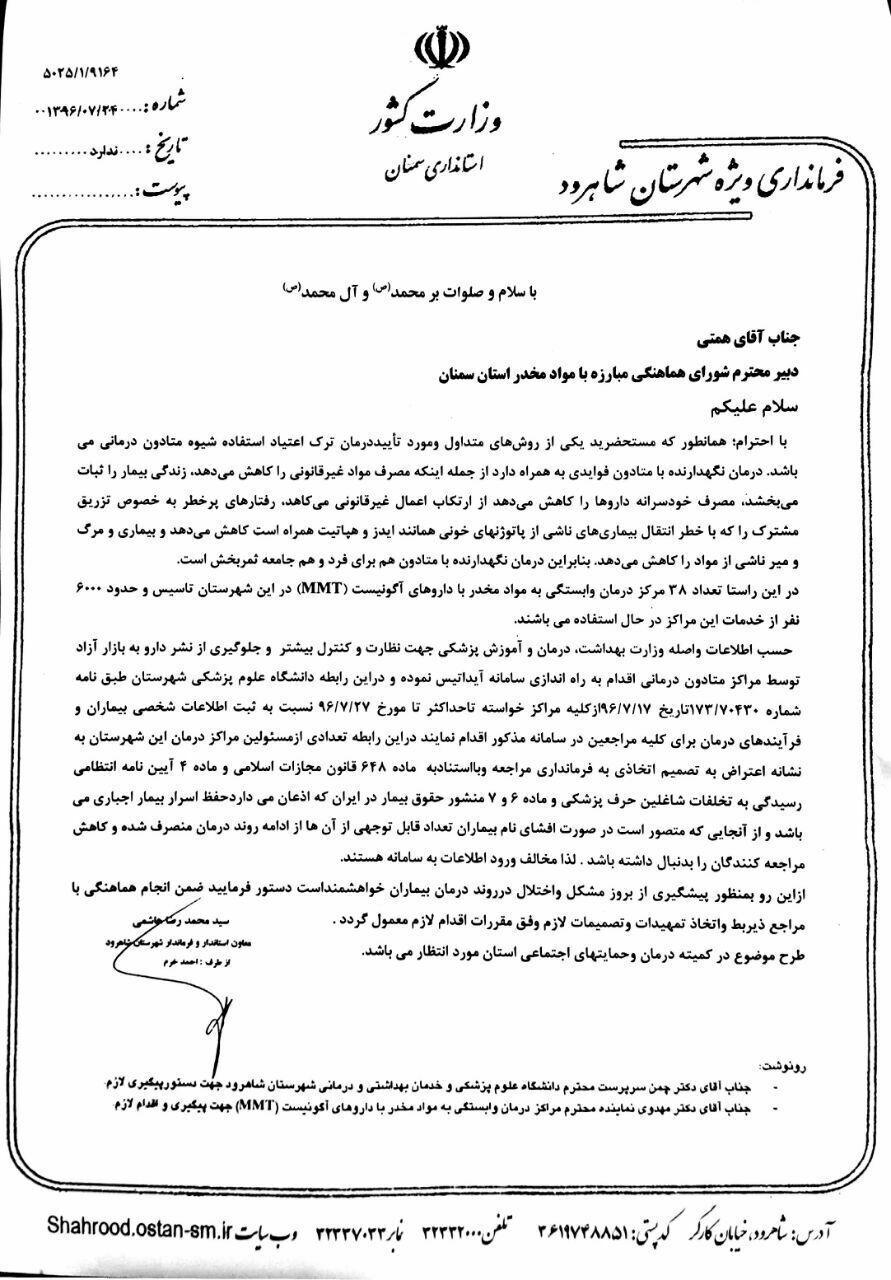 وزارت کشور
استانداری سمنان
فرمانداری ویژه شهرستان شاهرود
۵۰۲۵/۱/۹۱۶۴
شماره :....۱۳۹۶/۰۷/۲۴..
تاریخ :....ندارد.........
پیوست :................
با سلام و صلوات بر محمد(ص) و آل محمد(ص)
جناب آقای همتی
دبیر محترم شورای هماهنگی مبارزه با مواد مخدر استان سمنان
سلام علیکم
با احترام؛ همانطور که مستحضرید یکی از روش‌های متداول ومورد تأییددرمان ترک اعتیاد استفاده شیوه متادون درمانی می
باشد. درمان نگهدارنده با متادون فوایدی به همراه دارد از جمله اینکه مصرف مواد غیرقانونی را کاهش می‌دهد، زندگی بیمار را ثبات
می‌بخشد، مصرف خودسرانه داروها را کاهش می‌دهد از ارتکاب اعمال غیرقانونی می‌کاهد، رفتارهای پرخطر به خصوص تزریق
مشترک را که با خطر انتقال بیماری‌های ناشی از پاتوژنهای خونی همانند ایدز و هپاتیت همراه است کاهش می‌دهد و بیماری و مرگ
و میر ناشی از مواد را کاهش می‌دهد. بنابراین درمان نگهدارنده با متادون هم برای فرد و هم جامعه ثمربخش است.
در این راستا تعداد ۳۸ مرکز درمان وابستگی به مواد مخدر با داروهای آگونیست (MMT) در این شهرستان تاسیس و حدود ۶۰۰۰
نفر از خدمات این مراکز در حال استفاده می باشند.
حسب اطلاعات واصله وزارت بهداشت، درمان و آموزش پزشکی جهت نظارت و کنترل بیشتر و جلوگیری از نشر دارو به بازار آزاد
توسط مراکز متادون درمانی اقدام به راه اندازی سامانه آیداتیس نموده و دراین رابطه دانشگاه علوم پزشکی شهرستان طبق نامه
شماره ۱۷۳/۷۰۴۳۰تاریخ ۹۶/۷/۱۷ازکلیه مراکز خواسته تاحداکثر تا مورخ ۹۶/۷/۲۷ نسبت به ثبت اطلاعات شخصی بیماران و
فرآیندهای درمان برای کلیه مراجعین در سامانه مذکور اقدام نمایند دراین رابطه تعدادی ازمسئولین مراکز درمان این شهرستان به
نشانه اعتراض به تصمیم اتخاذی به فرمانداری مراجعه وبااستنادبه ماده ۶۴۸ قانون مجازات اسلامی و ماده ۴ آیین نامه انتظامی
رسیدگی به تخلفات شاغلین حرف پزشکی و ماده ۶ و ۷ منشور حقوق بیمار در ایران که اذعان می داردحفظ اسرار بیمار اجباری می
باشد و از آنجایی که متصور است در صورت افشای نام بیماران تعداد قابل توجهی از آن ها از ادامه روند درمان منصرف شده و کاهش
مراجعه کنندگان را بدنبال داشته باشد . لذا مخالف ورود اطلاعات به سامانه هستند.
ازاین رو بمنظور پیشگیری از بروز مشکل واختلال درروند درمان بیماران خواهشمنداست دستور فرمایید ضمن انجام هماهنگی با
مراجع ذیربط واتخاذ تمهیدات وتصمیمات لازم وفق مقررات اقدام لازم معمول گردد .
طرح موضوع در کمیته درمان وحمایتهای اجتماعی استان مورد انتظار می باشد.
سید محمد رضا هاشمی
معاون استاندار و فرماندار شهرستان شاهرود
از طرف : احمد خرم
رونوشت:
- جناب آقای دکتر چمن سرپرست محترم دانشگاه علوم پزشکی و خدمان بهداشتی و درمانی شهرستان شاهرود جهت دستورپیگیری لازم
- جناب آقای دکتر مهدوی نماینده محترم مراکز درمان وابستگی به مواد مخدر با داروهای آگونیست (MMT) جهت پیگیری و اقدام لازم
آدرس: شاهرود، خیابان کارگر کدپستی: ۳۶۱۹۷۴۸۸۵۱ تلفن ۳۲۲۳۲۰۰۰ نمابر ۳۲۲۳۷۰۳۳ وب سایت Shahrood.ostan-sm.ir